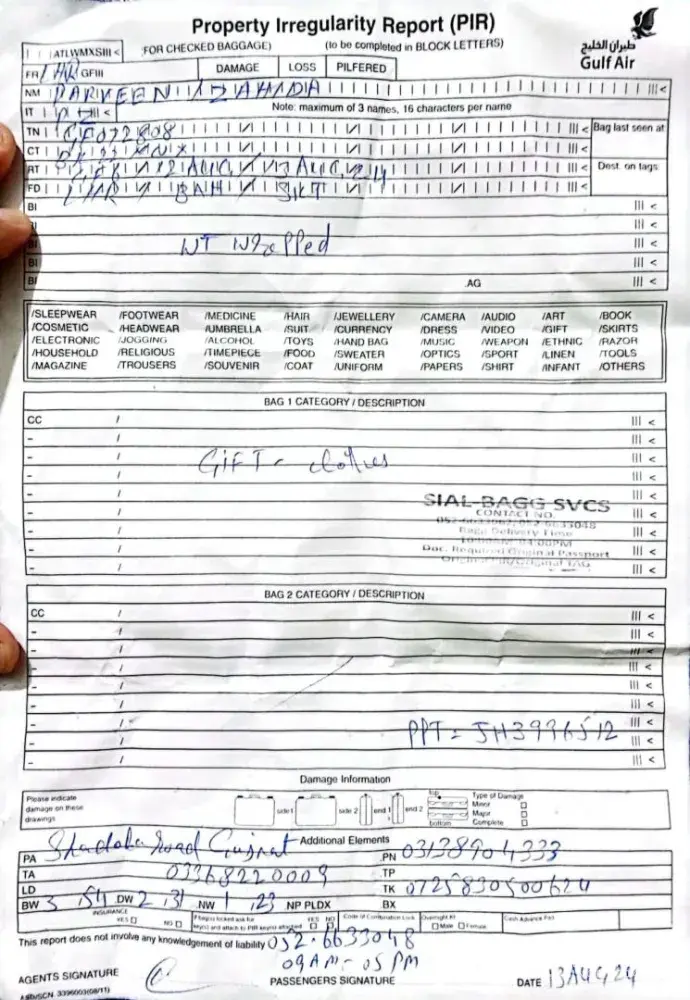 Property Irregularity Report (PIR)
(FOR CHECKED BAGGAGE) (to be completed in BLOCK LETTERS)
طيران الخليج
Gulf Air
FR/ LHR GFIII DAMAGE LOSS PILFERED
NM PARVEEN ZAHIDA
IT <
Note: maximum of 3 names, 16 characters per name
TN GF022808 Bag last seen at
CT
RT 12 AUG 13 AUG Dest. on tags
FD LHR BAH SKT
BI
BI
NT Wrapped
BI
BI .AG
/SLEEPWEAR /FOOTWEAR /MEDICINE /HAIR /JEWELLERY /CAMERA /AUDIO /ART /BOOK
/COSMETIC /HEADWEAR /UMBRELLA /SUIT /CURRENCY /DRESS /VIDEO /GIFT /SKIRTS
/ELECTRONIC /JOGGING /ALCOHOL /TOYS /HAND BAG /MUSIC /WEAPON /ETHNIC /RAZOR
/HOUSEHOLD /RELIGIOUS /TIMEPIECE /FOOD /SWEATER /OPTICS /SPORT /LINEN /TOOLS
/MAGAZINE /TROUSERS /SOUVENIR /COAT /UNIFORM /PAPERS /SHIRT /INFANT /OTHERS
BAG 1 CATEGORY / DESCRIPTION
CC /
GIFT - clothes
SIAL-BAGG SVCS
CONTACT NO.
Bagg Delivery Time
Doc. Required Original Passport
BAG 2 CATEGORY / DESCRIPTION
CC /
PPT = JH3996512
Damage Information
Please indicate
damage on these
drawings
side 1 side 2 end 1 end 2
top
bottom
Type of Damage
Minor
Major
Complete
Additional Elements
PA Shadola Road Gujrat .PN 03138904333
TA 03368220009 .TP
LD TK 072583050062
BW 3 54 DW 2 31 NW 1 23 NP PLDX BX
INSURANCE
YES NO
YES NO
Code of Combination Lock
Overnight Kit
Male Female
Cash Advance Paid
This report does not involve any knowledgement of liability 052-6633048
09AM - 05PM
AGENTS SIGNATURE PASSENGERS SIGNATURE DATE 13AUG24